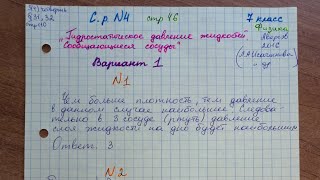 С.р. №4 стр 46
7 класс
Физика
§ 31, 32
2016
"Гидростатическое давление жидкостей
Сообщающиеся сосуды"
Вариант 1
№1
Чем больше плотность, тем давление
в данном случае наибольшее. Следова-
тельно в 3 сосуде (ртуть) давление
слоя жидкости на дно будет наибольшим
Ответ. 3
№2